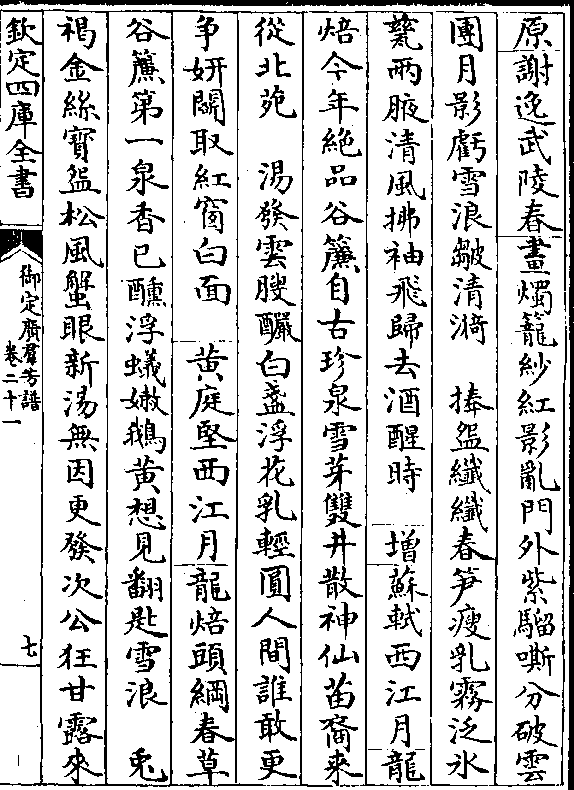 原謝逸武陵春畫燭籠紗紅影亂門外紫騮嘶分破雲
團月影虧雪浪皺清漪　捧盌纖纖春笋瘦乳霧泛氷
甆兩腋清風拂袖飛歸去酒醒時　增蘇軾西江月龍
焙今年絶品谷簾自古珍泉雪芽雙井散神仙苗裔来
從北苑　湯發雲腴釅白盞浮花乳輕圓人間誰敢更
争妍鬬取紅窗白面　黄庭堅西江月龍焙頭綱春草
谷簾第一泉香已醺浮蟻嫩鵝黄想見翻匙雪浪　兎
褐金絲寶盌松風蟹眼新湯無因更發次公狂甘露來
欽定四庫全書
御定廣羣芳譜
卷二十一
七